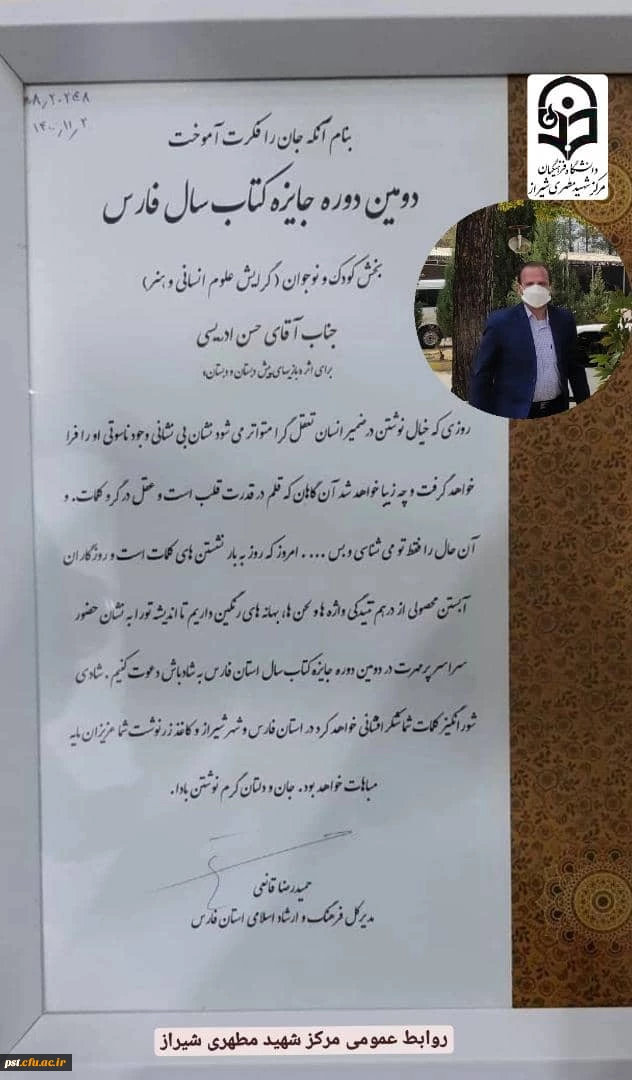 ۱۴۰۰/۱۱/۲
بنام آنکه جان را فکرت آموخت
دانشگاه فرهنگیان
مرکز شهید مطهری شیراز
دومین دوره جایزه کتاب سال فارس
بخش کودک و نوجوان (گرایش علوم انسانی و هنر)
جناب آقای حسن ادریسی
برای اثر «بازیهای پیش دبستان و دبستان»
روزی که خیال نوشتن در ضمیر انسان تعقل گرا متواتر می شود نشان بی نشانی وجود ناسوتی او را فرا
خواهد گرفت و چه زیبا خواهد شد آن گاهان که قلم در قدرت قلب است و عقل در گرو کلمات. و
آن حال را فقط تو می شناسی و بس .... امروز که روز به بار نشستن های کلمات است و روزگاران
آبستن محصولی از درهم تنیدگی واژه ها و لحن ها، بهانه های رنگین داریم تا اندیشه تو را به نشان حضور
سراسر پر مهرت در دومین دوره جایزه کتاب سال استان فارس به شادباش دعوت کنیم. شادی
شورانگیز کلمات شما شکرافشانی خواهد کرد در استان فارس و شهر شیراز و کاغذ زرنوشت شما عزیزان مایه
مباهات خواهد بود. جان و دلتان گرم نوشتن بادا.
حمیدرضا قانعی
مدیرکل فرهنگ و ارشاد اسلامی استان فارس
روابط عمومی مرکز شهید مطهری شیراز
pst.cfu.ac.ir